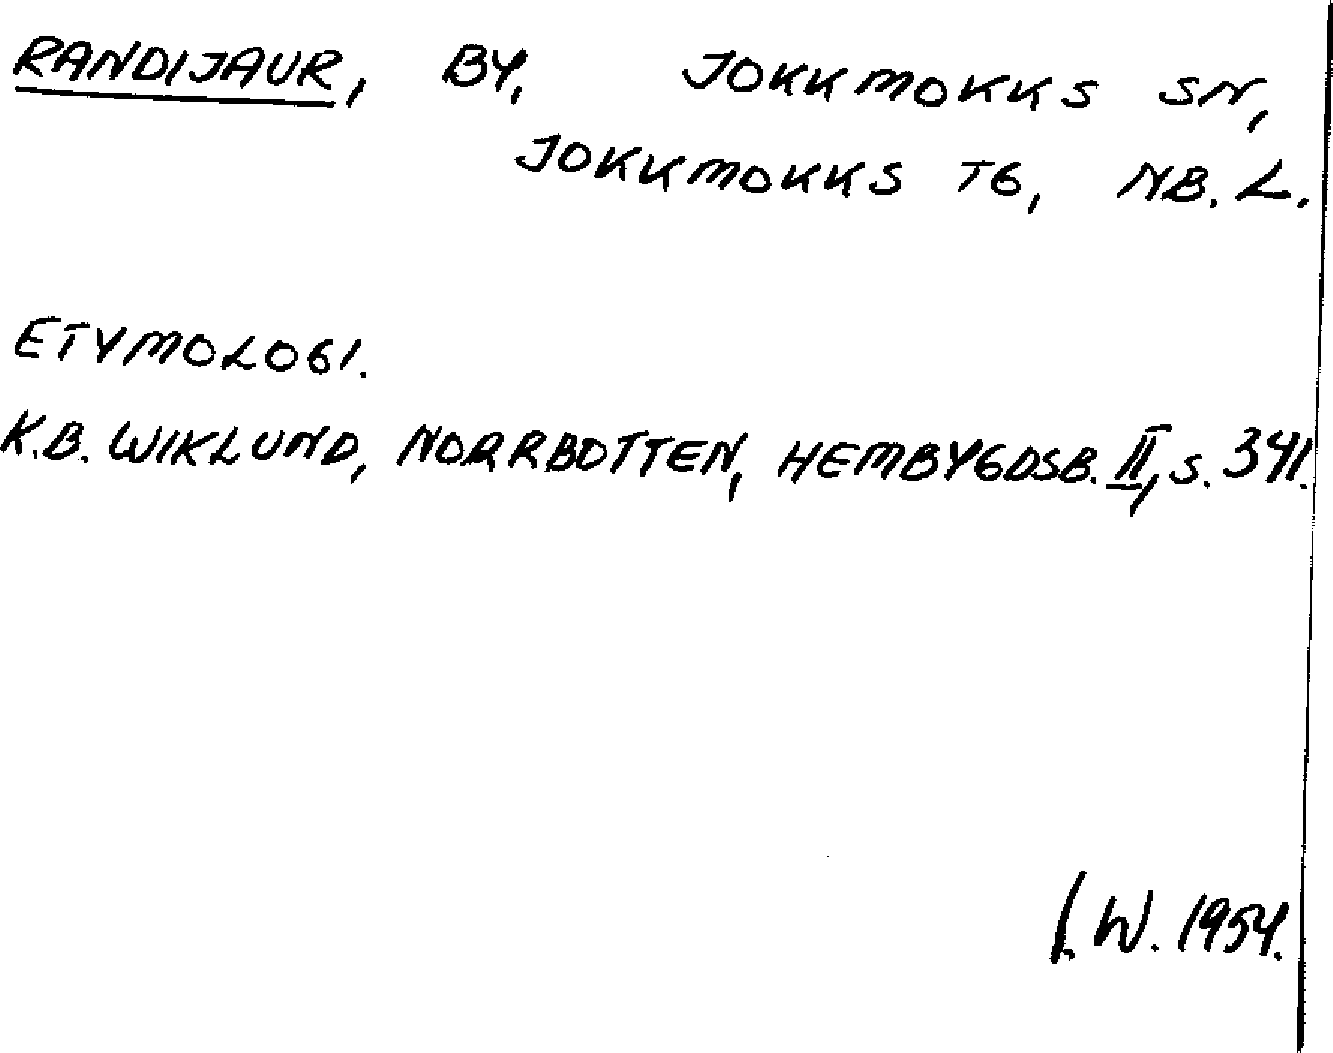 RANDIJAUR, BY, JOKKMOKKS SN,
JOKKMOKKS TG, NB. L.
ETYMOLOGI.
K.B. WIKLUND, NORRBOTTEN, HEMBYGDSB. II, S. 341.
I. W. 1954.